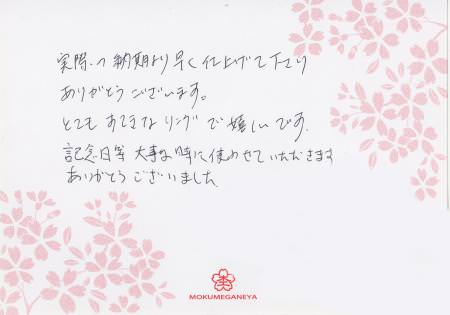 実際の納期より早く仕上げて下さり
ありがとうございます。
とてもすてきなリングで嬉しいです。
記念日等大事な時に使わせていただきます
ありがとうございました
MOKUMEGANEYA